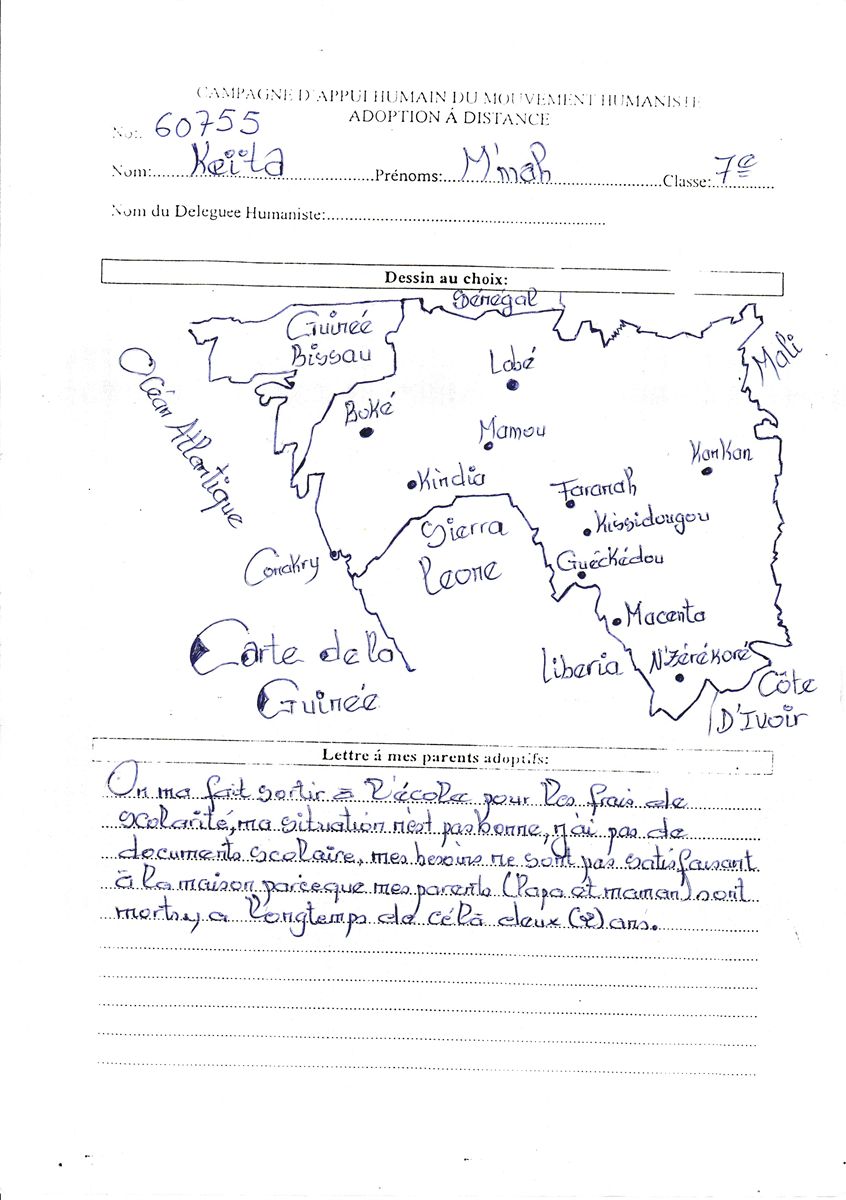 CAMPAGNE D'APPUI HUMAIN DU MOUVEMENT HUMANISTE
ADOPTION Á DISTANCE
No: 60755
Nom: Keïta Prénoms: M'mah Classe: 7e
Nom du Deleguee Humaniste:
Dessin au choix:
Sénégal
Guinée
Bissau
Mali
Océan Atlantique
Labé
Boké
Mamou
KanKan
Kindia
Faranah
Kissidougou
Sierra
Leone
Guéckédou
Conakry
Macenta
Carte de la
Guinée
Liberia
N'Zérékoré
Côte
D'Ivoir
Lettre á mes parents adoptifs:
On ma fait sortir à l'école pour les frais de
scolarité, ma situation n'est pas bonne, j'ai pas de
documents scolaire, mes besoins ne sont pas satisfaisant
à la maison parceque mes parents (Papa et maman) sont
morts y a longtemps de célà deux (2) ans.